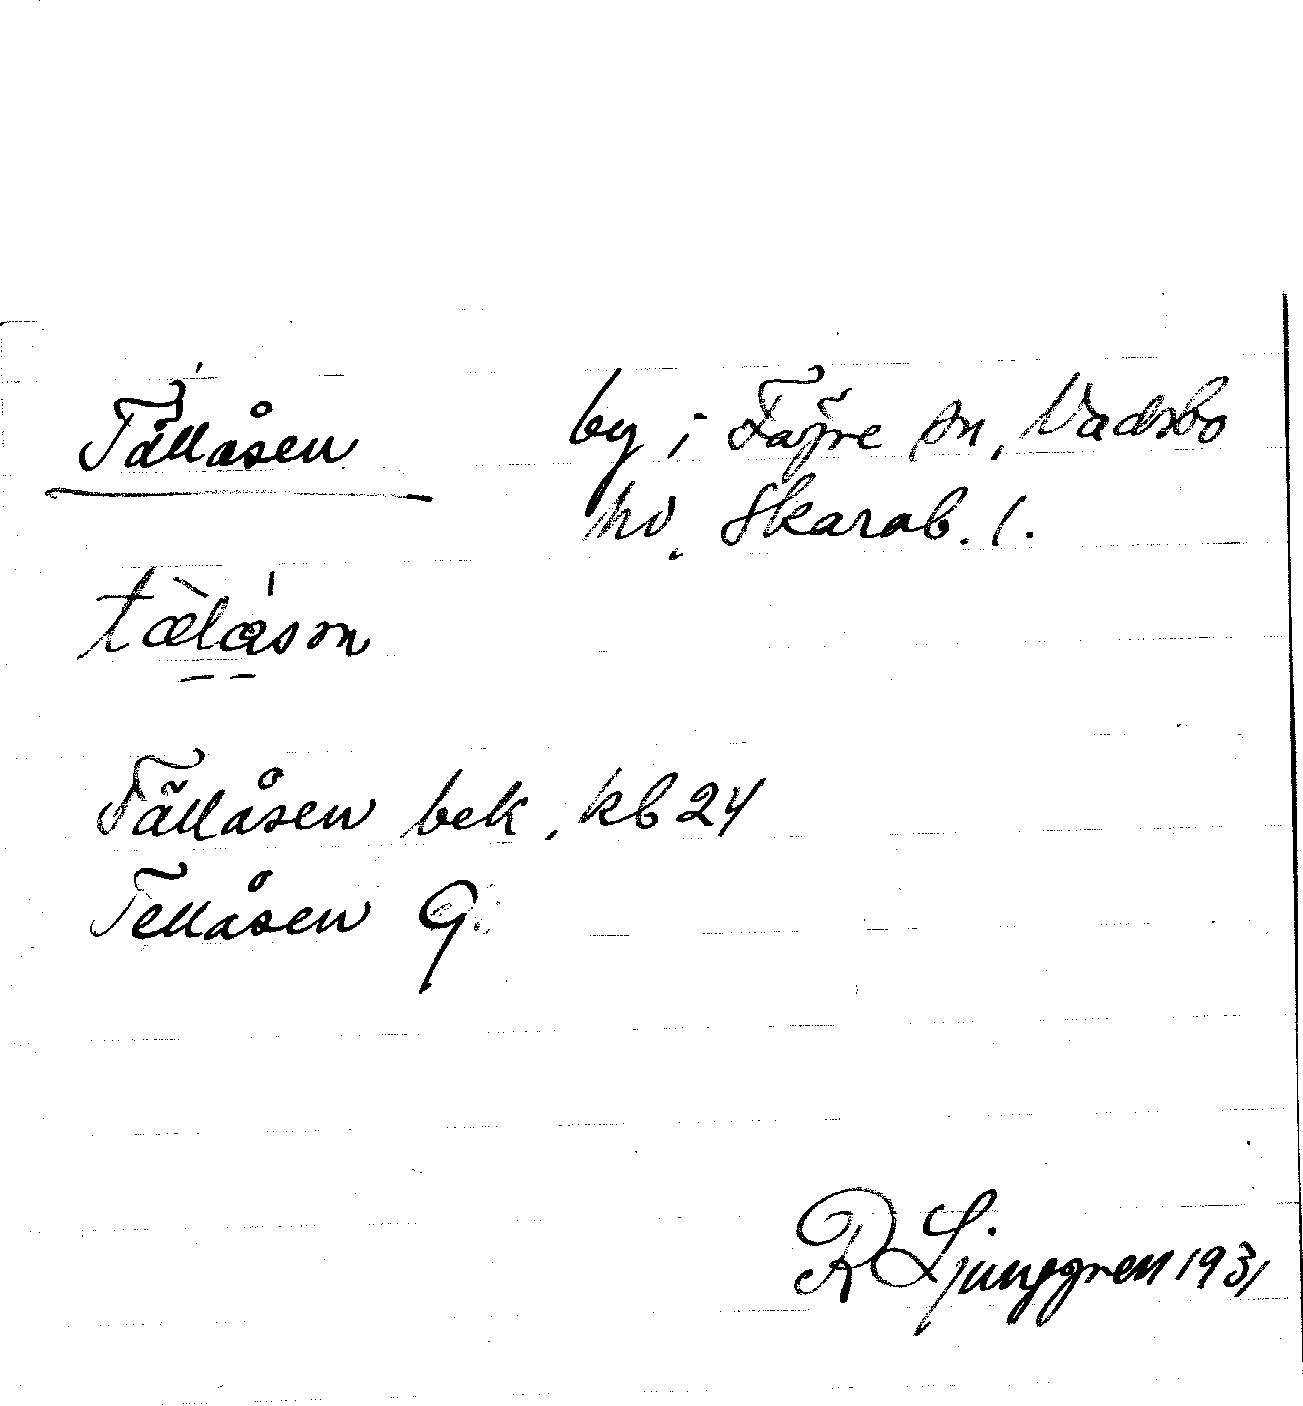 Tällåsen by i Färe sn, Vadsbo
hd. Skarab. l.
tæ̀låsən
Tällåsen bek, kb 24
Tellåsen G.
R Ljunggren 1931